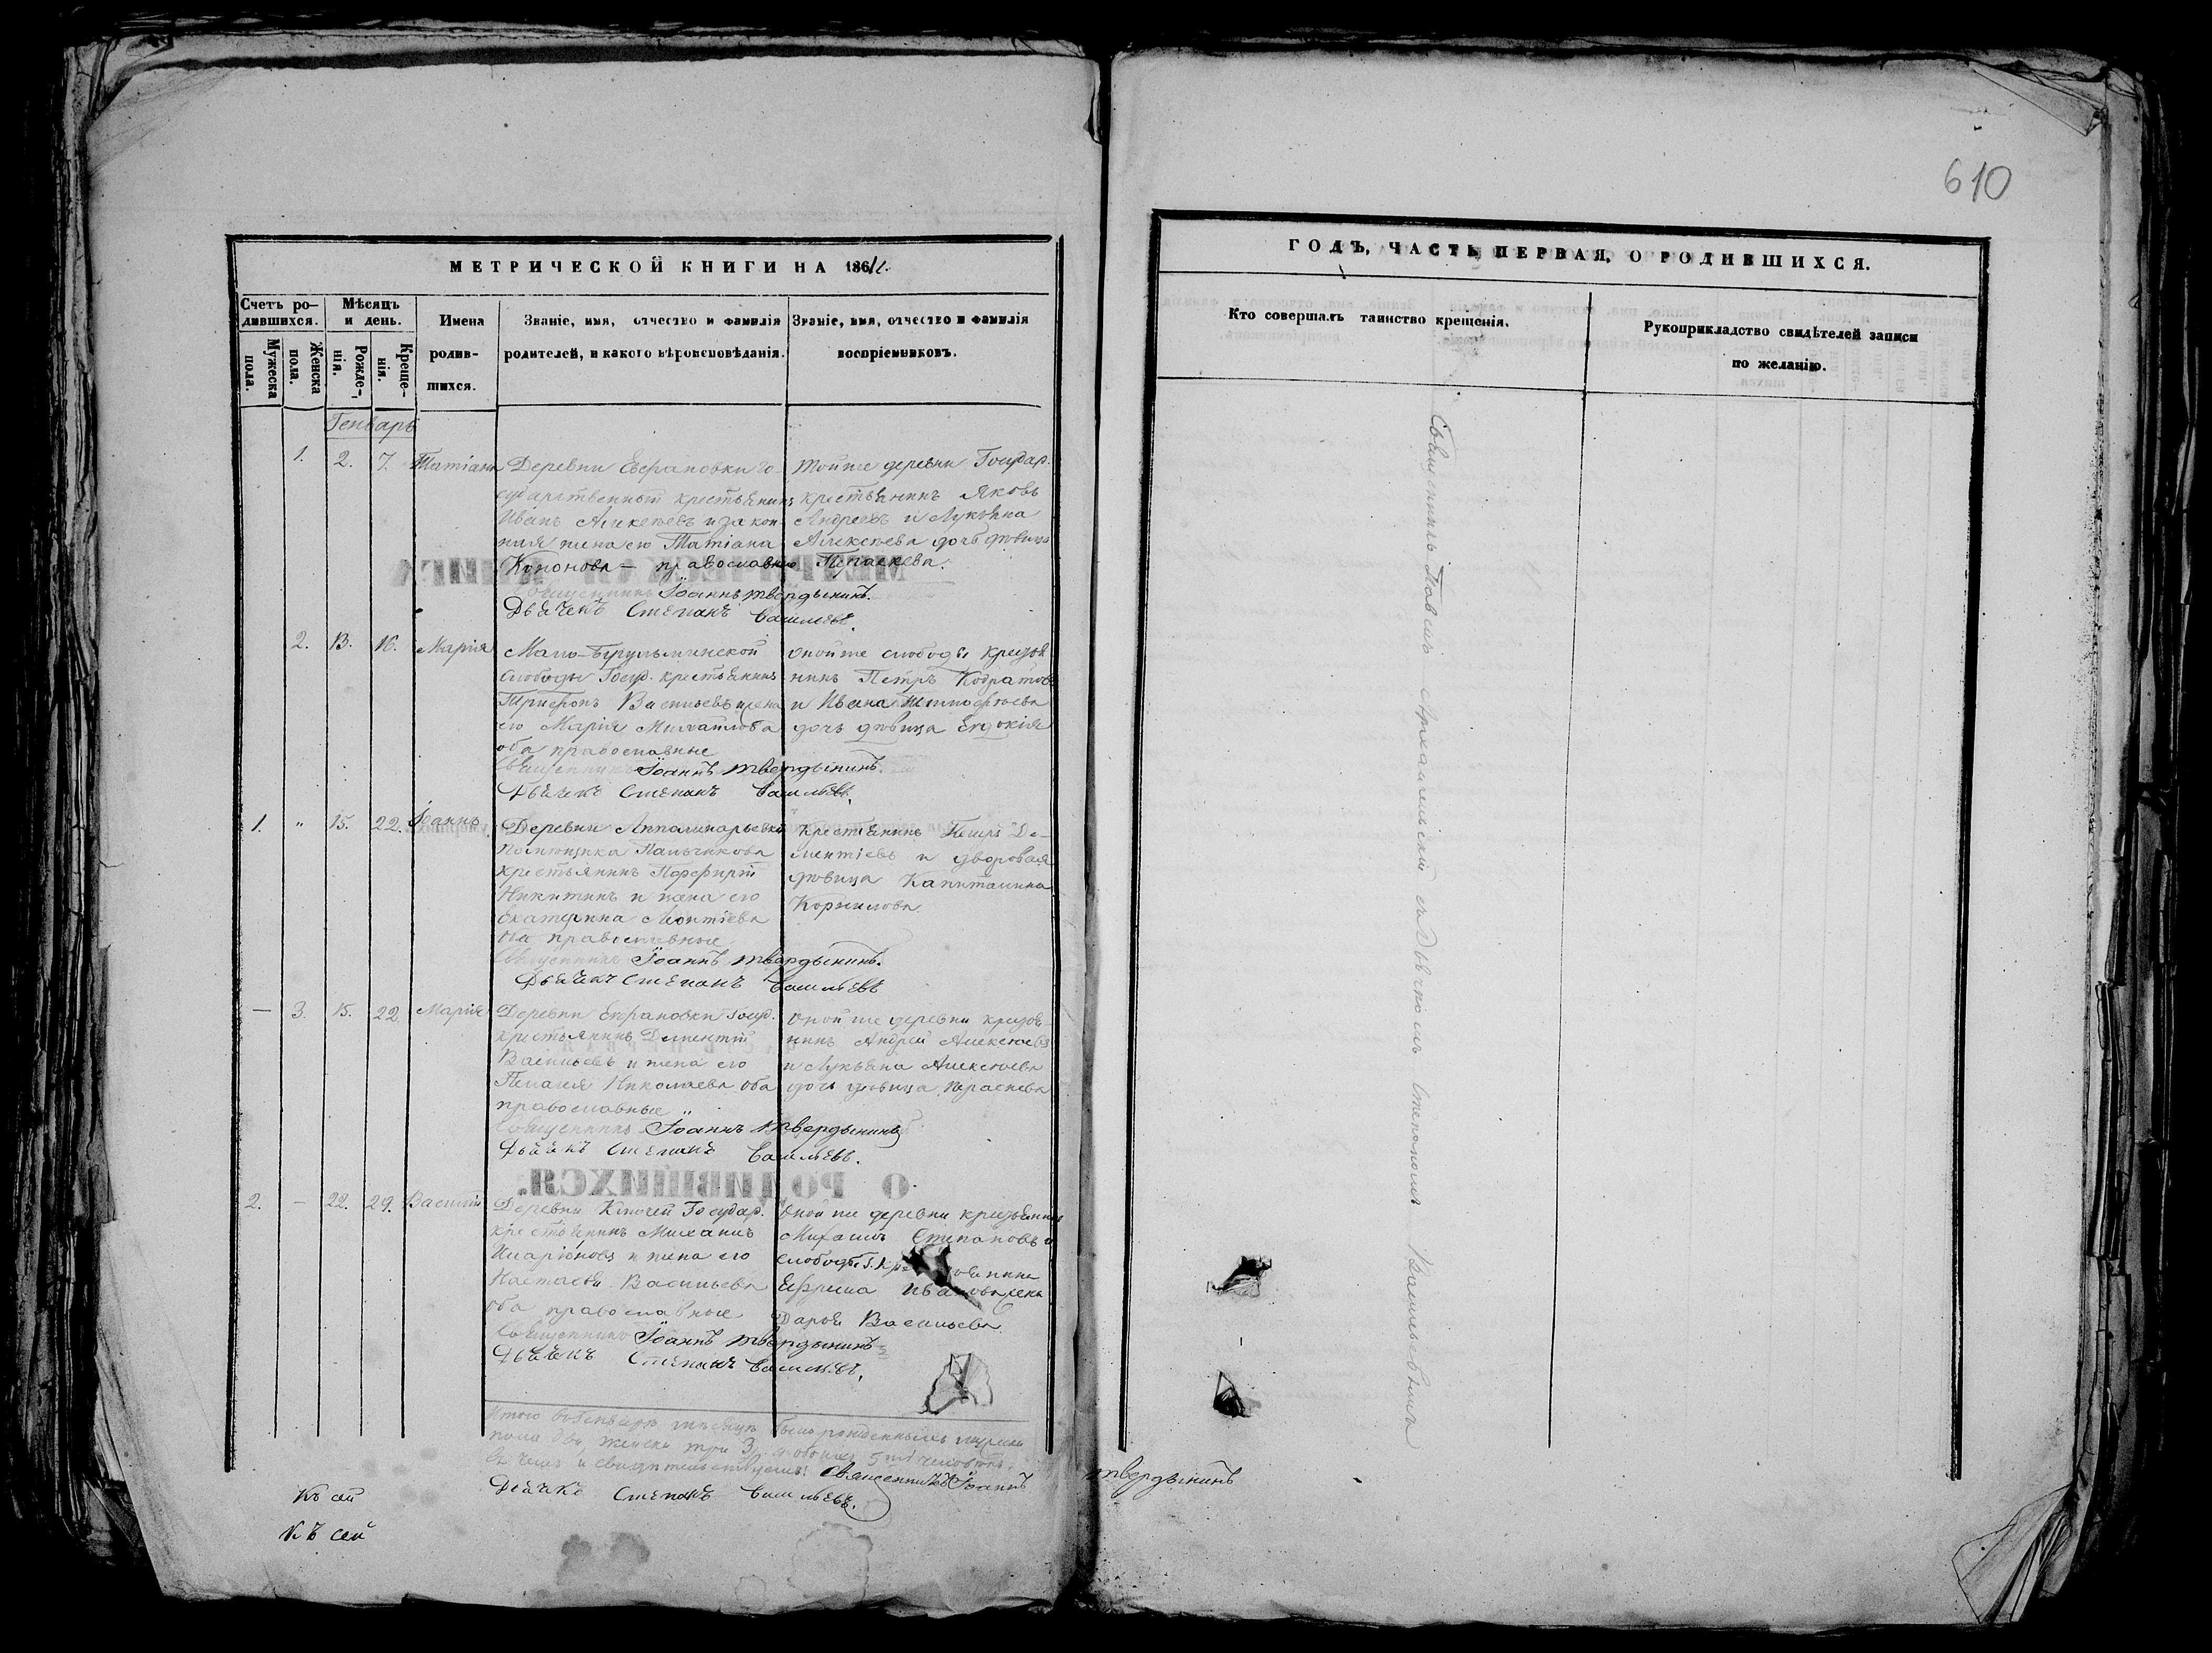 610
МЕТРИЧЕСКОЙ КНИГИ НА 186
ГОДЪ, ЧАСТЬ ПЕРВАЯ, О РОДИВШИХСЯ.
Счетъ ро-
дившихся.
Мѣсяцъ
и день.
Имена
родив-
шихся.
Званіе, имя, отчество и фамилія
родителей, и какого вѣроисповѣданія.
Званіе, имя, отчество и фамилія
воспріемниковъ.
Мужеска
пола.
Женска
пола.
Рожде-
нія.
Креще-
нія.
Кто совершалъ таинство крещенія.
Рукоприкладство свидѣтелей записи
по желанію.
Генварь
1. 2. 7. Татіана
Деревни
сударственный крестьянинъ
Иванъ Алексѣевъ и закон-
ная жена его Татіана
Кононова — православнаго
Тойже деревни Государ.
крестьянинъ Яковъ
Андреевъ и Лукіяна
Алексѣева дочь дѣвица
Священникъ Іоаннъ Твердынинъ.
Дьячекъ Степанъ Васильевъ.
2. 13. 16. Марія
Мало-Бугульминской
слободы Госуд. крестьянинъ
Трифонъ Васильевъ жена
его Марія
оба православные
оной же слободы крестья
нинъ Петръ
и Ивана Тимофѣева
дочь дѣвица Евдокія
Священникъ Іоаннъ Твердынинъ.
Дьячекъ Степанъ Васильевъ.
1. " 15. 22. Іоаннъ
Деревни Аполинарьевки
помѣщика Пальчикова
крестьянинъ Порфирій
Никитинъ и жена его
Екатерина
оба православные
Крестьянинъ Петръ Де-
ментіевъ и дворовая
дѣвица Капиталина
Корнилова
Священникъ Іоаннъ Твердынинъ.
Дьячекъ Степанъ Васильевъ
— 3. 15. 22. Марія
Деревни Госуд.
крестьянинъ Дементій
Васильевъ и жена его
Пелагея Николаева оба
православные
оной же деревни крестья
нинъ Андрей Алексѣевъ
и Лукьяна Алексѣева
дочь дѣвица
Священникъ Іоаннъ Твердынинъ
Дьячекъ Степанъ Васильевъ.
2. — 22. 29. Василій
Деревни Ключей Государ.
крестьянинъ Михаилъ
Иларіоновъ и жена его
Настасья Васильева
оба православные
оной же деревни крестьянинъ
Михаилъ Степановъ и
слободы
Ефрема Иванова жена
Дарья Васильева
Священникъ Іоаннъ Твердынинъ
Дьячекъ Степанъ Васильевъ.
Итого въ Генварѣ мѣсяцѣ было рожденныхъ мужеска
пола два, женска три 3, а обоихъ 5ть человѣкъ.
въ чемъ и свидѣтельствуемъ: Священникъ Іоаннъ Твердынинъ
Дьячекъ Степанъ Васильевъ.
Къ сей
Къ сей
Священникъ Павелъ Архангельскій съ Дьячкомъ Степаномъ Васильевымъ